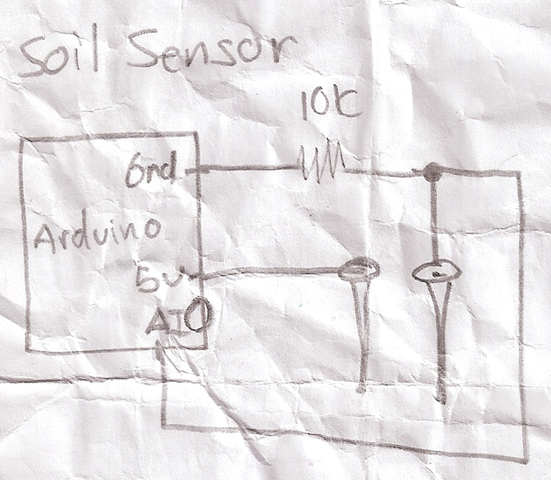 Soil Sensor
10K
Gnd
Arduino
5v
AI0